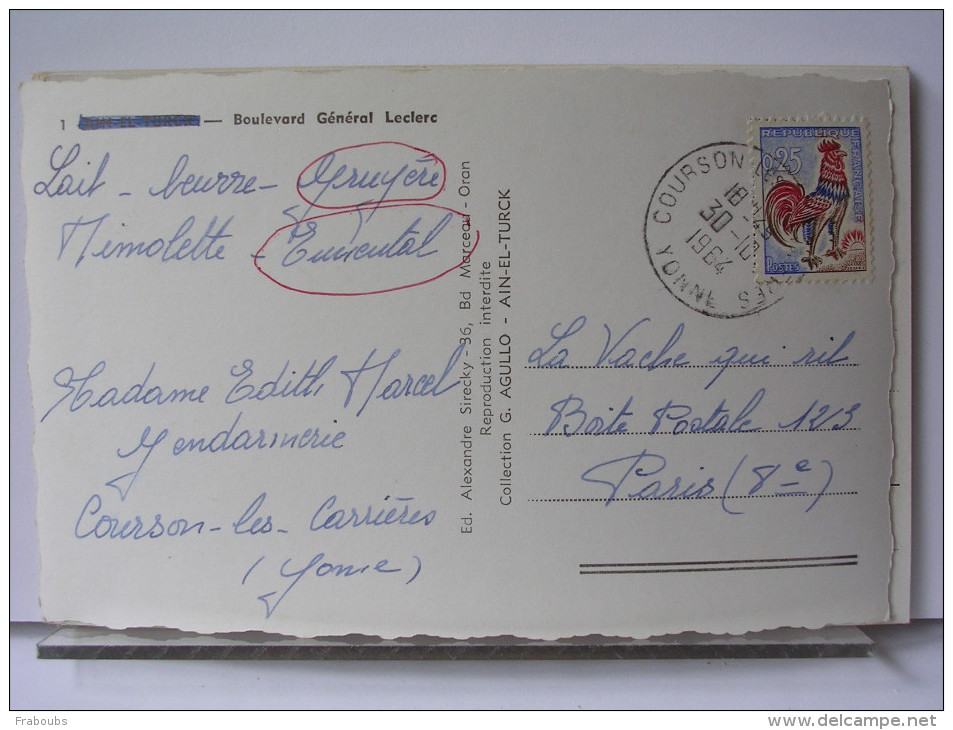 1 AIN-EL-TURCK — Boulevard Général Leclerc
Lait - beurre - Gruyère
Mimolette - Emmental
Madame Edith Marcel
Gendarmerie
Courson-les-Carrières
(Yonne)
Ed. Alexandre Sirecky - 36, Bd Marceau - Oran
Reproduction interdite
Collection G. AGULLO - AIN-EL-TURCK
COURSON
18
30-10
1964
YONNE
REPUBLIQUE
FRANCAISE
0,25
POSTES
La Vache qui rit
Boite Postale 123
Paris (8e)
Fraboubs
www.delcampe.net